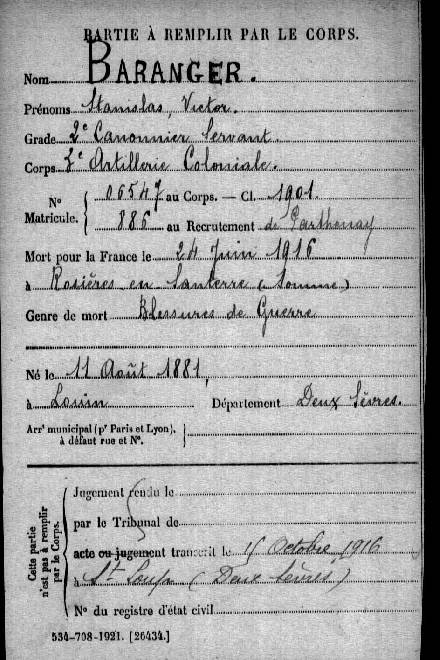 PARTIE À REMPLIR PAR LE CORPS.
Nom BARANGER.
Prénoms Stanislas, Victor.
Grade 2e Canonnier Servant.
Corps 2e Artillerie Coloniale.
No Matricule. { 06547 au Corps. — Cl. 1901
886 au Recrutement de Parthenay
Mort pour la France le 24 Juin 1916
à Rosières en Santerre (Somme)
Genre de mort Blessures de Guerre
Né le 11 Août 1881,
à Louin Département Deux Sèvres.
Arrt municipal (pr Paris et Lyon), à défaut rue et No. {
Cette partie n'est pas à remplir par le Corps.
Jugement rendu le
par le Tribunal de
acte ou jugement transcrit le Octobre 1916
à St Loup (Deux Sèvres)
No du registre d'état civil
534-708-1921. [26434.]